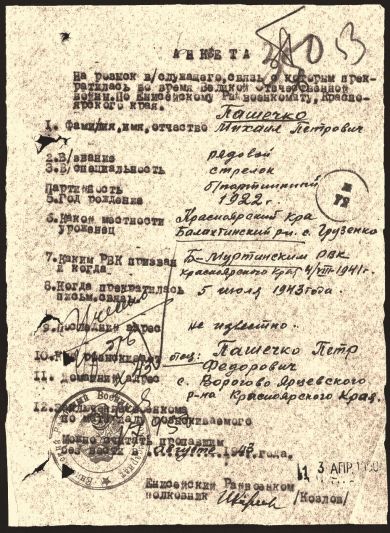 АНКЕТА
На розыск в/служащего, связь с которым прек-
ратилась во время Великой Отечественной
войны. По Енисейскому Райвоенкомату, Красно-
ярского края.
Пашечко
1. Фамилия, имя, отчество Михаил Петрович
2. В/звание рядовой
3. В/специальность стрелок
Партийность б/партийный
5. Год рождения 1922 г.
6. Какой местности Красноярский кра
уроженец Балахтинский р-н. с. Грузенко
7. Каким РВК призван Б-Муртинским РВК
и когда Красноярского края 4/VIII-1941г.
8. Когда прекратилась 5 июля 1943 года.
письм. связь
9. Последний адрес не известно.
10. отец: Пашечко Петр
Федорович
11. Домашний адрес с. Ворогово Ярцевского
р-на Красноярского Края.
12.
разыскиваемого
Можно считать пропавшим
без вести августе 1943 года.
3 АПР
Енисейский Райвоенком
полковник /Козлов/